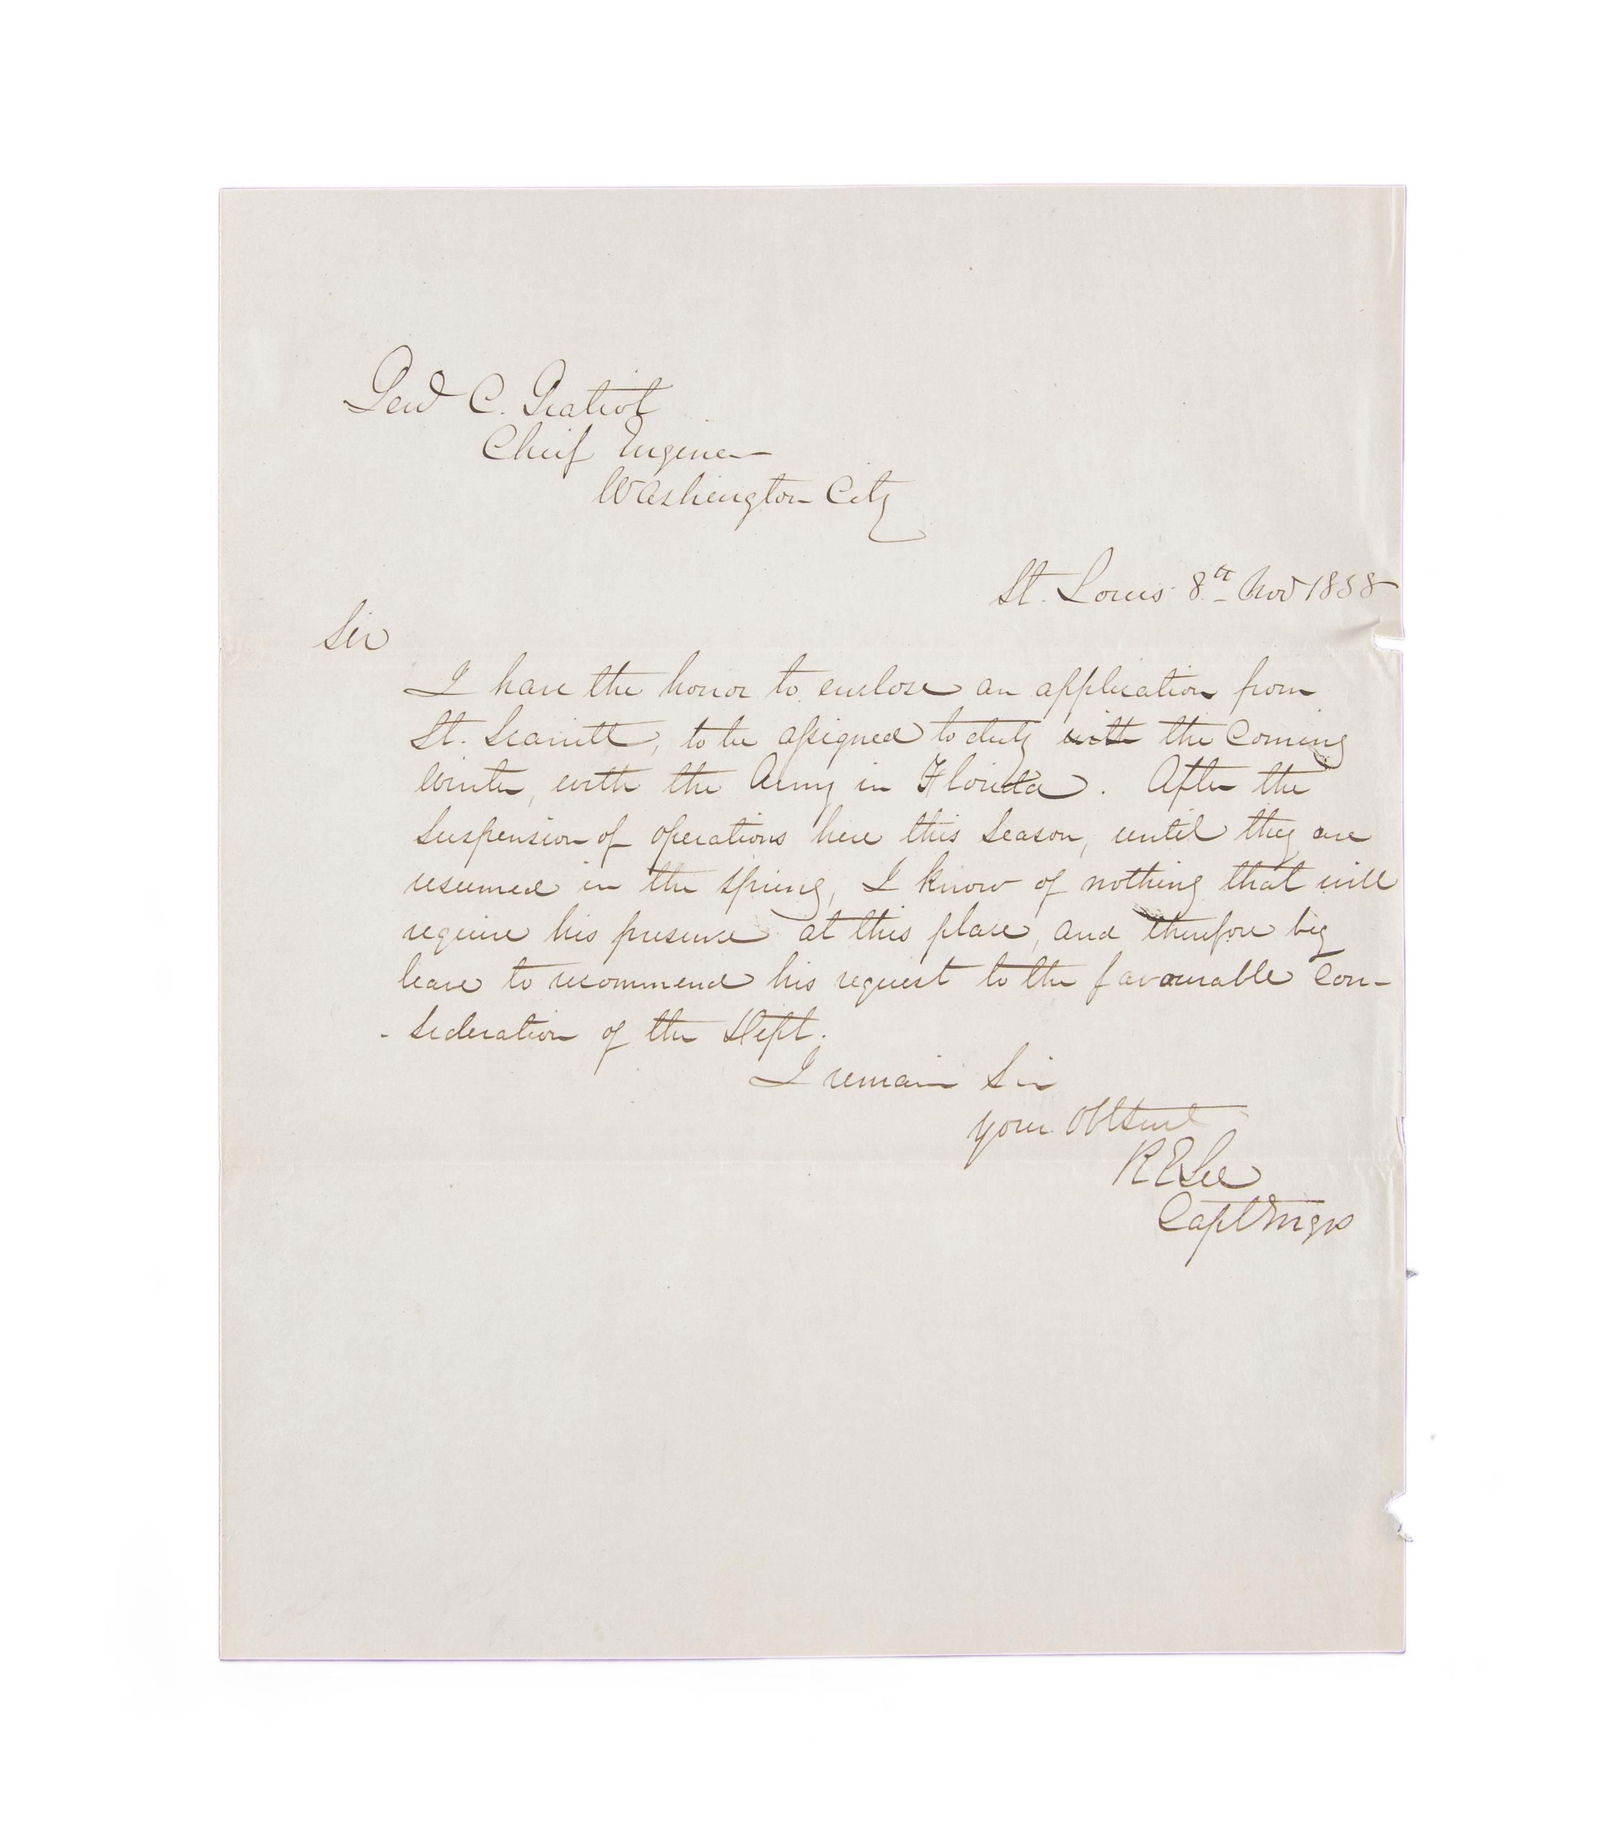 Genl C. Gratiot
Chief Engineer
Washington City
St. Louis 8th Nov 1838
Sir
I have the honor to enclose an application from
Lt. Scarritt, to be assigned to duty with the coming
winter, with the Army in Florida. After the
suspension of operations here this season, until they are
resumed in the spring, I know of nothing that will
require his presence at this place, and therefore beg
leave to recommend his request to the favourable con-
- sideration of the Dept.
I remain Sir
your Obt Servt
R E Lee
Capt Engrs